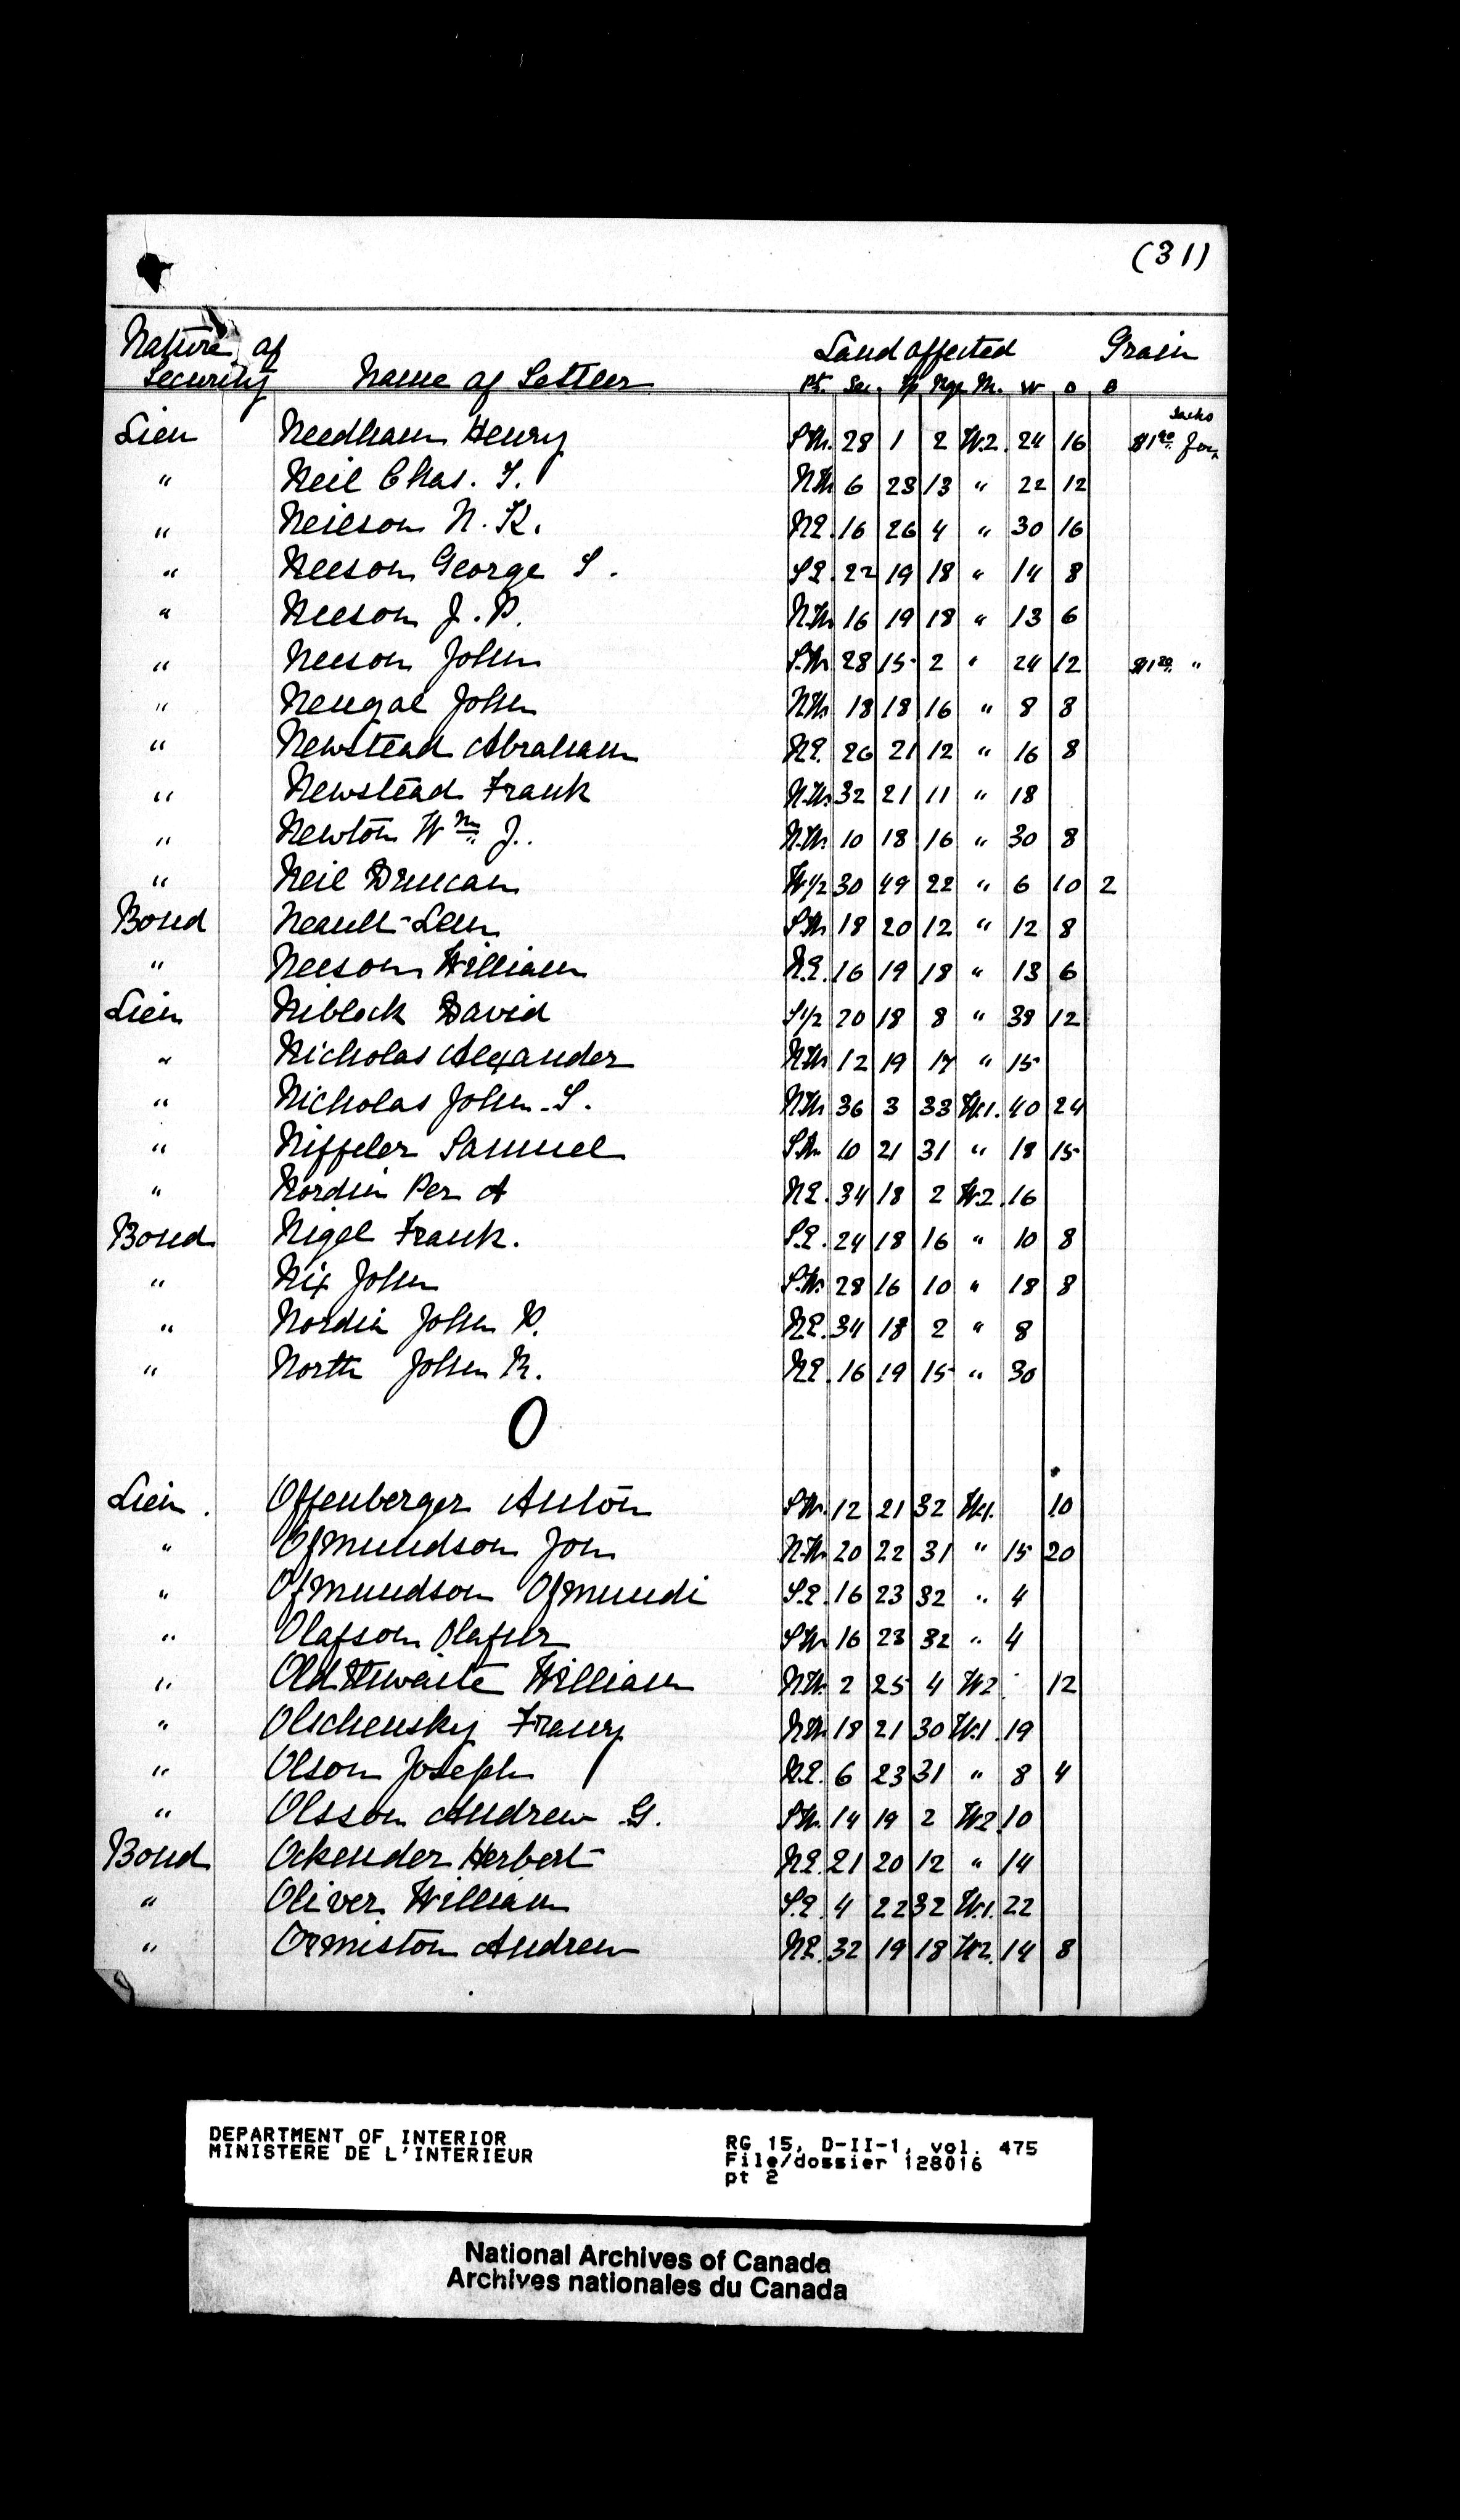 (31)
Nature of Land affected Grain
Security Name of Settler Pt. Sec. Tp Rge M. W O B
sacks
Lien Needham Henry S.W. 28 1 2 W.2. 24 16 $1.20 for
" Neil Chas. T. N.W. 6 28 13 " 22 12
" Neilson N. K. N.E. 16 26 4 " 30 16
" Nelson George S. S.E. 22 19 18 " 14 8
" Nelson J. P. N.W. 16 19 18 " 13 6
" Nelson John S.W. 28 15 2 " 24 12 $1.20 "
" John N.W. 18 18 16 " 8 8
" Newstead Abraham N.E. 26 21 12 " 16 8
" Newstead Frank N.W. 32 21 11 " 18
" Newton Wm J. N.W. 10 18 16 " 30 8
" Neil Duncan W1/2 30 49 22 " 6 10 2
Bond S.W. 18 20 12 " 12 8
" Nelson William N.E. 16 19 18 " 13 6
Lien Niblock David S1/2 20 18 8 " 38 12
" Nicholas Alexander N.W. 12 19 17 " 15
" Nicholas John S. N.W. 36 3 33 W.1. 40 24
" Niffeler Samuel S.W. 10 21 31 " 18 15
" Nordin Per A N.E. 34 18 2 W.2. 16
Bond Nigel Frank. S.E. 24 18 16 " 10 8
" Nix John S.W. 28 16 10 " 18 8
" Nordin John P. N.E. 34 18 2 " 8
" North John R. N.E. 16 19 15 " 30
O
Lien Offenberger Anton S.W. 12 21 32 W.1. 10
" Ofmundson Jon N.W. 20 22 31 " 15 20
" Ofmundson Ofmundi S.E. 16 23 32 " 4
" Olafson Olafur S.W. 16 23 32 " 4
" Oldthwaite William N.W. 2 25 4 W2 12
" Olschensky Franz N.W. 18 21 30 W.1. 19
" Olson Joseph N.E. 6 23 31 " 8 4
" Olsson Andrew G. S.W. 14 19 2 W2. 10
Bond Ockender Herbert N.E. 21 20 12 " 14
" Oliver William S.E. 4 22 32 W.1. 22
" Ormiston Andrew N.E. 32 19 18 W2. 14 8
DEPARTMENT OF INTERIOR
MINISTERE DE L'INTERIEUR
RG 15, D-II-1, vol. 475
File/dossier 128016
pt 2
National Archives of Canada
Archives nationales du Canada